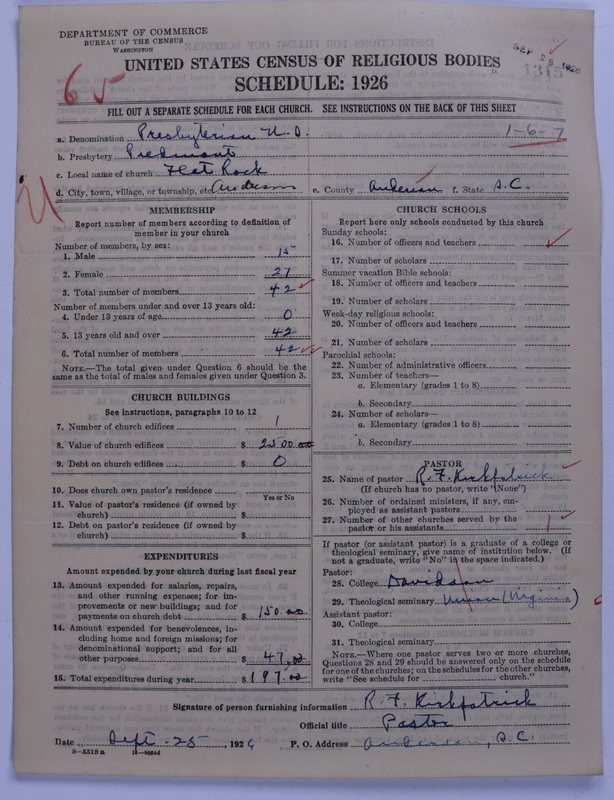 DEPARTMENT OF COMMERCE
BUREAU OF THE CENSUS
WASHINGTON
SEP 28 1926
1315
UNITED STATES CENSUS OF RELIGIOUS BODIES
SCHEDULE: 1926
65
FILL OUT A SEPARATE SCHEDULE FOR EACH CHURCH. SEE INSTRUCTIONS ON THE BACK OF THIS SHEET
a. Denomination Presbyterian U.S. 1-6-7
b. Presbytery Piedmont
c. Local name of church Flat Rock
d. City, town, village, or township, etc. Anderson e. County Anderson f. State S.C.
MEMBERSHIP
Report number of members according to definition of
member in your church
Number of members, by sex:
1. Male 15
2. Female 27
3. Total number of members 42
Number of members under and over 13 years old:
4. Under 13 years of age 0
5. 13 years old and over 42
6. Total number of members 42
NOTE.—The total given under Question 6 should be
same as the total of males and females given under Question 3.
CHURCH BUILDINGS
See instructions, paragraphs 10 to 12
7. Number of church edifices 1
8. Value of church edifices $ 2500.00
9. Debt on church edifices $ 0
10. Does church own pastor's residence
Yes or No
11. Value of pastor's residence (if owned by
church) $
12. Debt on pastor's residence (if owned by
church) $
EXPENDITURES
Amount expended by your church during last fiscal year
13. Amount expended for salaries, repairs,
and other running expenses; for im-
provements or new buildings; and for
payments on church debt $ 150.00
14. Amount expended for benevolences, in-
cluding home and foreign missions; for
denominational support; and for all
other purposes $ 47.00
15. Total expenditures during year $ 197.00
CHURCH SCHOOLS
Report here only schools conducted by this church
Sunday schools:
16. Number of officers and teachers
17. Number of scholars
Summer vacation Bible schools:
18. Number of officers and teachers
19. Number of scholars
Week-day religious schools:
20. Number of officers and teachers
21. Number of scholars
Parochial schools:
22. Number of administrative officers
23. Number of teachers—
a. Elementary (grades 1 to 8)
b. Secondary
24. Number of scholars—
a. Elementary (grades 1 to 8)
b. Secondary
PASTOR
25. Name of pastor R. F. Kirkpatrick
(If church has no pastor, write "None")
26. Number of ordained ministers, if any, em-
ployed as assistant pastors
27. Number of other churches served by the
pastor or his assistants 1
If pastor (or assistant pastor) is a graduate of a college or
theological seminary, give name of institution below. (If
not a graduate, write "No" in the space indicated.)
Pastor:
28. College Davidson
29. Theological seminary Union (Virginia)
Assistant pastor:
30. College
31. Theological seminary
NOTE.—Where one pastor serves two or more churches,
Questions 28 and 29 should be answered only on the schedule
for one of the churches; on the schedules for the other churches,
write "See schedule for church."
Signature of person furnishing information R. F. Kirkpatrick
Official title Pastor
Date Sept. 25, 1926 P. O. Address Anderson, S.C.